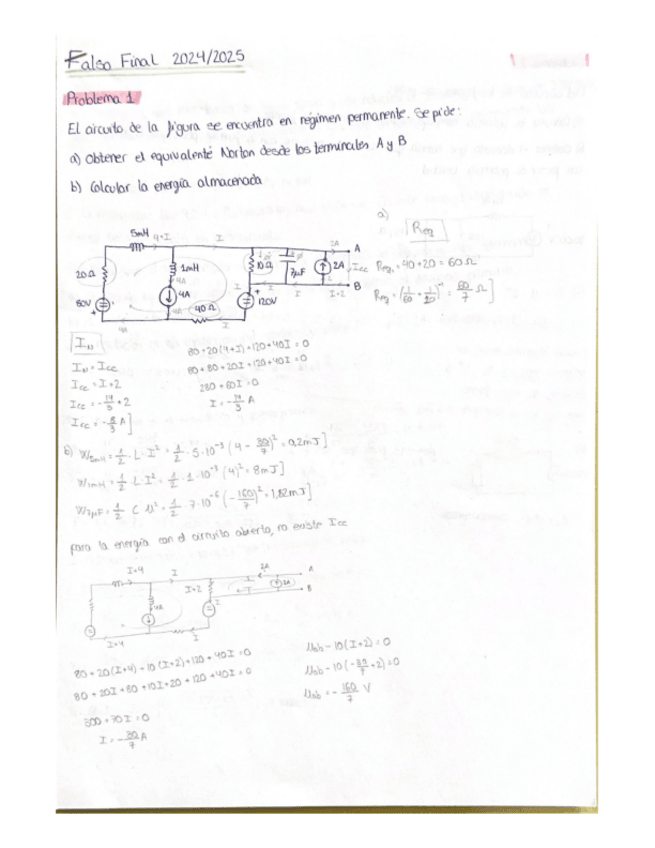 Falso Final 2024/2025
Problema 1
El circuito de la figura se encuentra en régimen permanente. Se pide:
a) Obtener el equivalente Norton desde los terminales A y B
b) Calcular la energía almacenada
5mH 4+I I
20Ω
80V
1mH
4A
4A
40Ω
10Ω
7μF
2A
2A
Icc
120V
I+2
A
B
a)
Req
Req₁ = 40+20 = 60Ω
Req = (1/60 + 1/10)⁻¹ = 60/7 Ω ]
IN
IN = Icc
Icc = I+2
Icc = -14/3 + 2
Icc = -8/3 A ]
80+20(4+I)+120+40I=0
80+80+20I+120+40I=0
280+60I=0
I=-14/3 A
b) W5mH = 1/2 · L · I² = 1/2 · 5·10⁻³ (4 - 30/7)² = 0,2mJ ]
W1mH = 1/2 · L I² = 1/2 · 1·10⁻³ (4)² = 8mJ ]
W7μF = 1/2 C U² = 1/2 · 7·10⁻⁶ (-160/7)² = 1,82mJ ]
para la energía con el circuito abierto, no existe Icc
I+4 I
I+2
4A
2A
2A
A
B
I
I+4
80+20(I+4)+10(I+2)+120+40I=0
80+20I+80+10I+20+120+40I=0
300+70I=0
I=-30/7 A
Uab-10(I+2)=0
Uab-10(-30/7+2)=0
Uab=-160/7 V